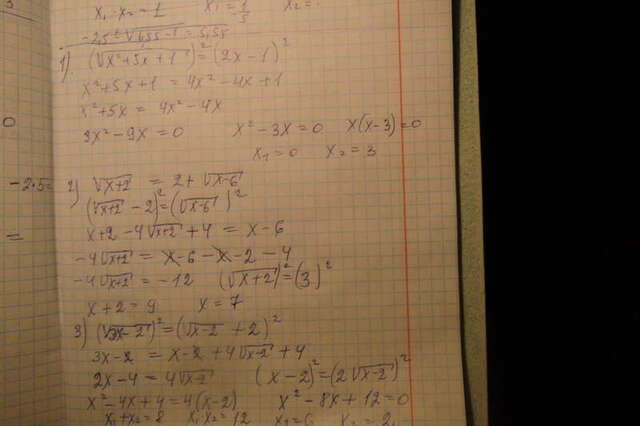 x₁·x₂ = 1   x₁ = 1/5   x₂ =
1) (√x²+5x+1)² = (2x-1)²
x²+5x+1 = 4x²-4x+1
x²+5x = 4x²-4x
3x²-9x = 0   x²-3x = 0   x(x-3) = 0
x₁ = 0   x₂ = 3
0
-2,5=
=
2) √x+2 = 2+√x-6
(√x+2 - 2)² = (√x-6)²
x+2-4√x+2+4 = x-6
-4√x+2 = x-6-x-2-4
-4√x+2 = -12   (√x+2)² = (3)²
x+2 = 9   x = 7
3) (√3x-2)² = (√x-2+2)²
3x-2 = x-2+4√x-2+4
2x-4 = 4√x-2   (x-2)² = (2√x-2)²
x²-4x+4 = 4(x-2)   x²-8x+12 = 0
x₁+x₂ = 8   x₁x₂ = 12   x₁ = 6   x₂ = 2